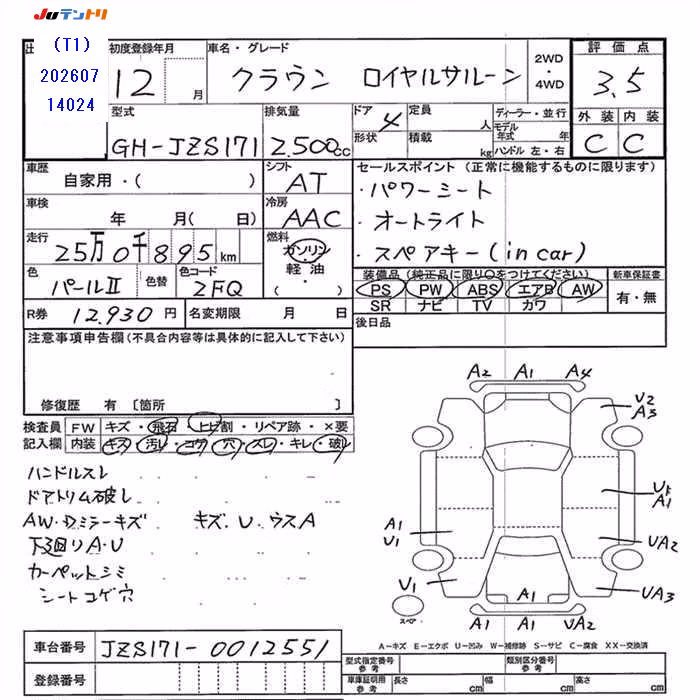 JUテントリ
(T1)
202607
14024
初度登録年月
12 月
車名・グレード
クラウン ロイヤルサルーン
2WD
・
4WD
評価点
3.5
外装 内装
C C
型式
GH-JZS171
排気量
2.500cc
ドア
4
形状
定員
人
積載
kg
ディーラー・並行
モデル年式 年
ハンドル 左・右
車歴
自家用・( )
シフト
AT
車検
年 月( 日)
冷房
AAC
走行
25万0千895km
燃料
ガソリン
軽油
( ・ )
色
パールⅡ
色替
色コード
2FQ
R券 12,930 円
名変期限 月 日
セールスポイント(正常に機能するものに限ります)
・パワーシート
・オートライト
・スペアキー(in car)
装備品(純正品に限り○をつけてください)
PS PW ABS エアB AW
SR ナビ TV カワ
新車保証書
有・無
後日品
注意事項申告欄(不具合内容等は具体的に記入して下さい)
修復歴 有〔箇所 〕
検査員記入欄
FW キズ・飛石・ヒビ割・リペア跡・×要
内装 キズ・汚レ・コゲ・穴・スレ・キレ・破レ
ハンドルスレ
ドアトリム破レ
AW・Dミラーキズ キズ、U、ウスA
下廻りA・U
カーペットシミ
シートコゲ穴
A2 A1 A4
U2
A3
U1
A1
A1
U1
UA2
U1
UA3
A1 A1 UA2
スペア
A-キズ E-エクボ U-凹み W-補修跡 S-サビ C-腐食 XX-交換済
車台番号 JZS171-0012551
登録番号
型式指定番号
参考
類別区分番号
参考
車庫証明用
参考
長さ cm 幅 cm 高さ cm